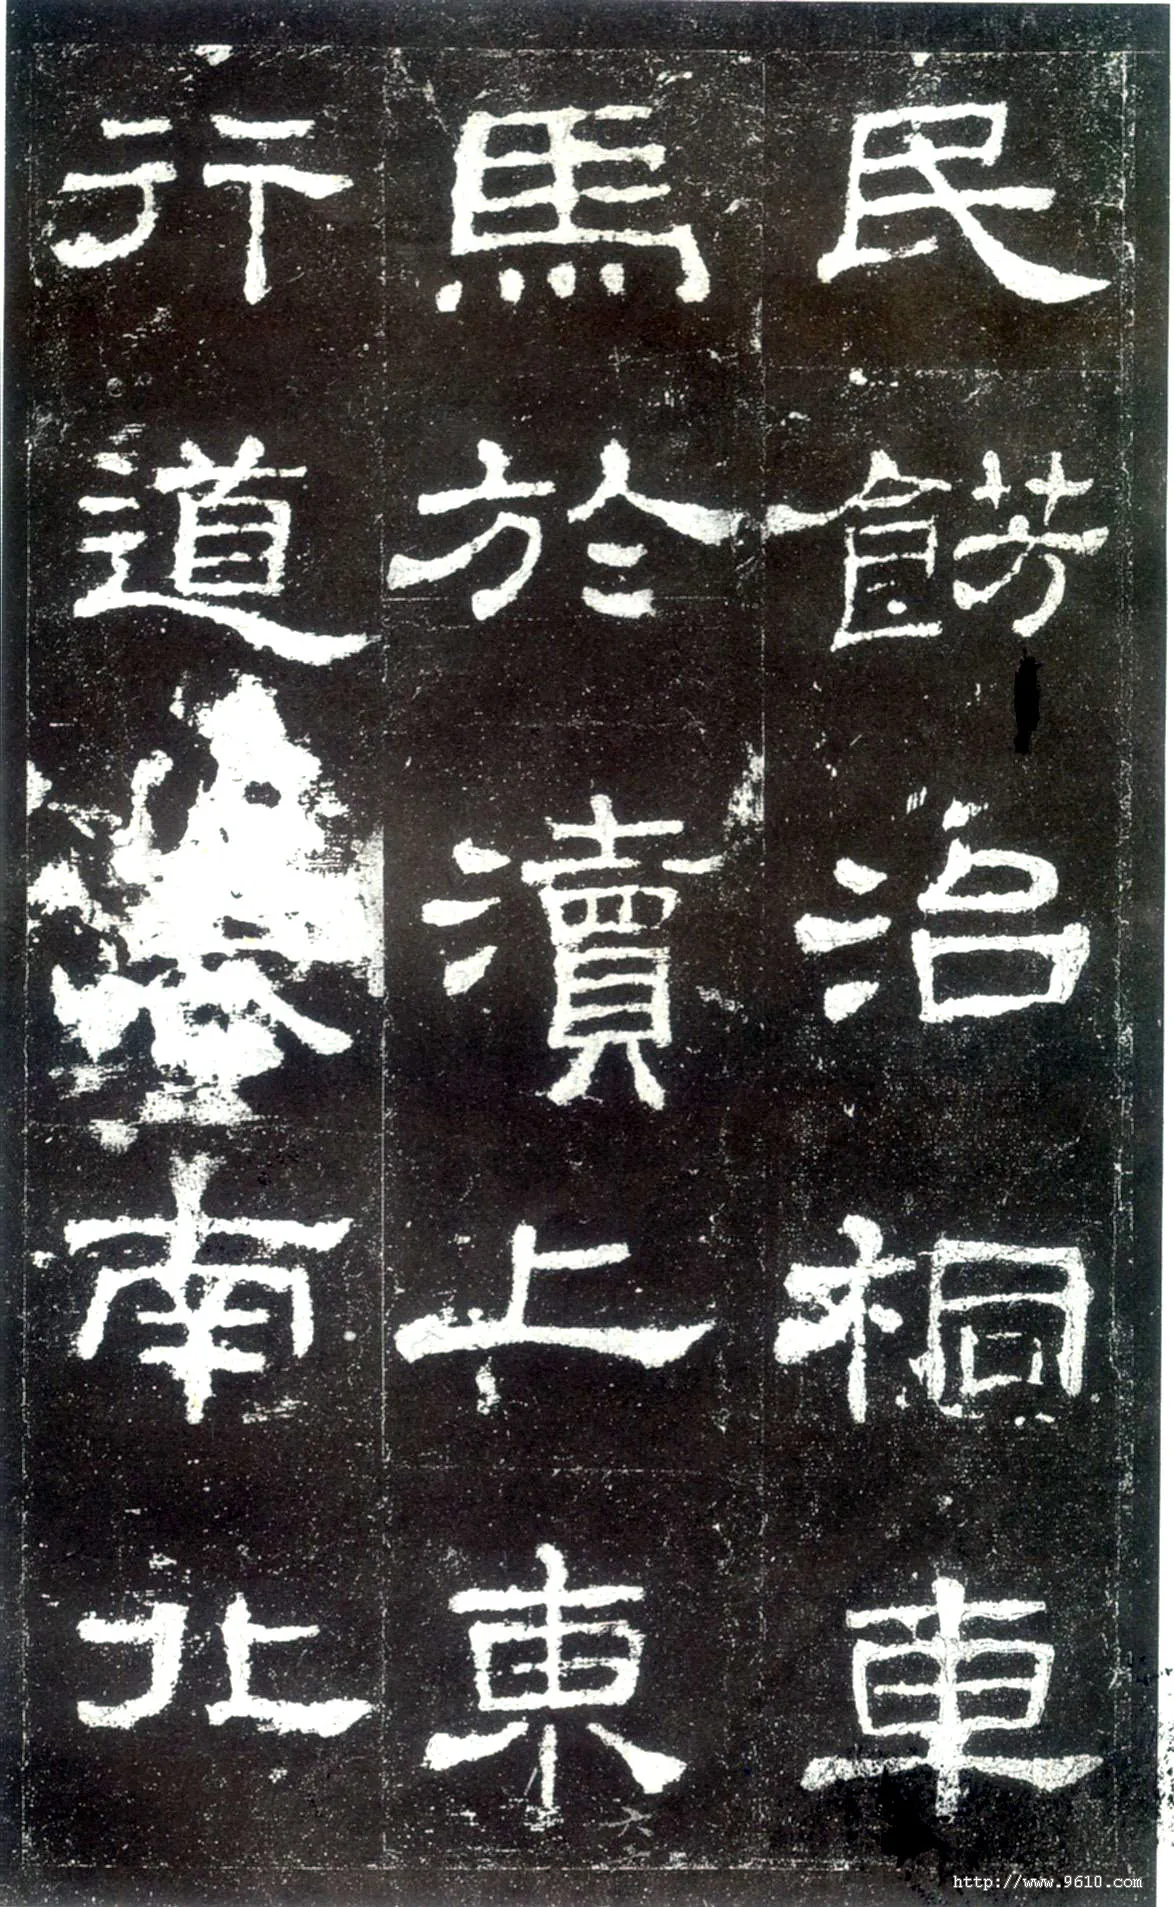 民餝治桐車
馬於瀆上東
行道南北
http://www.9610.com